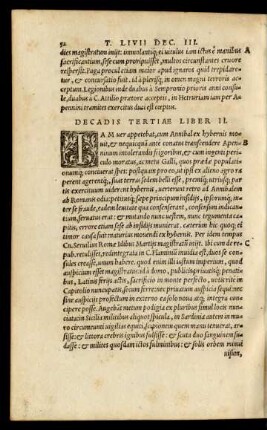 92 T. LIVII DEC. III.
dies magistratum inijt: immolantiq; ei uitulus iam ictus è manibus A
sacrificantium sese cum proripuisset, multos circunstantes cruore
respersit. Fuga procul etiam maior apud ignaros quid trepidare-
tur, & concursatio fuit. id à plerisq; in omen magni terroris ac-
ceptum. Legionibus inde duabus à Sempronio prioris anni consu-
le, duabus à C. Attilio prætore acceptis, in Hetruriam iam per Ap-
pennini tramites exercitus duci est cœptus.
DECADIS TERTIAE LIBER II.
IAM uer appetebat, cum Annibal ex hybernis mo-
uit, & nequicquam ante conatus transcendere Appen- B
ninum intolerandis frigoribus, & cum ingenti peri-
culo moratus, ac metu Galli, quos prædæ populatio-
numq; conciuerat spes: postquam pro eo, ut ipsi ex alieno agro ra-
perent agerentq;, suas terras sedem belli esse, premiq; utriusq; par-
tis exercituum uiderent hybernis, uerterunt retro ad Annibalem
ab Romanis odia: petitusq; sæpe principum insidijs, ipsorum, in-
ter se fraude, eadem leuitate qua consenserant, consensum indicant-
tium, seruatus erat: & mutando nunc uestem, nunc tegumenta ca-
pitis, errore etiam sese ab insidijs munierat. cæterum hic quoq; ei
timor causa fuit maturius mouendi ex hybernis. Per idem tempus
Cn. Seruilius Romæ Idibus Martijs magistratū inijt. Ibi cum de C
repub. retulisset, redintegrata in C. Flaminiū inuidia est, duos se con-
sules creasse, unum habere. quod enim illi iustum imperium, quod
auspicium esse? magistratus id à domo, publicis priuatisq; penati-
bus, Latinis ferijs actis, sacrificio in monte perfecto, uotis rite in
Capitolio nuncupatis secum ferre: nec priuatum auspicia sequi: nec
sine auspicijs profectum in externo ea solo noua atq; integra con-
cipere posse. Augebant metum prodigia ex pluribus simul locis nun-
ciata: in Sicilia militibus aliquot spicula, in Sardinia autem in mu-
ro circumeunti uigilias equiti, scipionem quem manu tenuerat, ar-
sisse: & littora crebris ignibus fulsisse: & scuta duo sanguinem su-
dasse: & milites quosdam ictos fulminibus: & solis orbem minui
uisum,